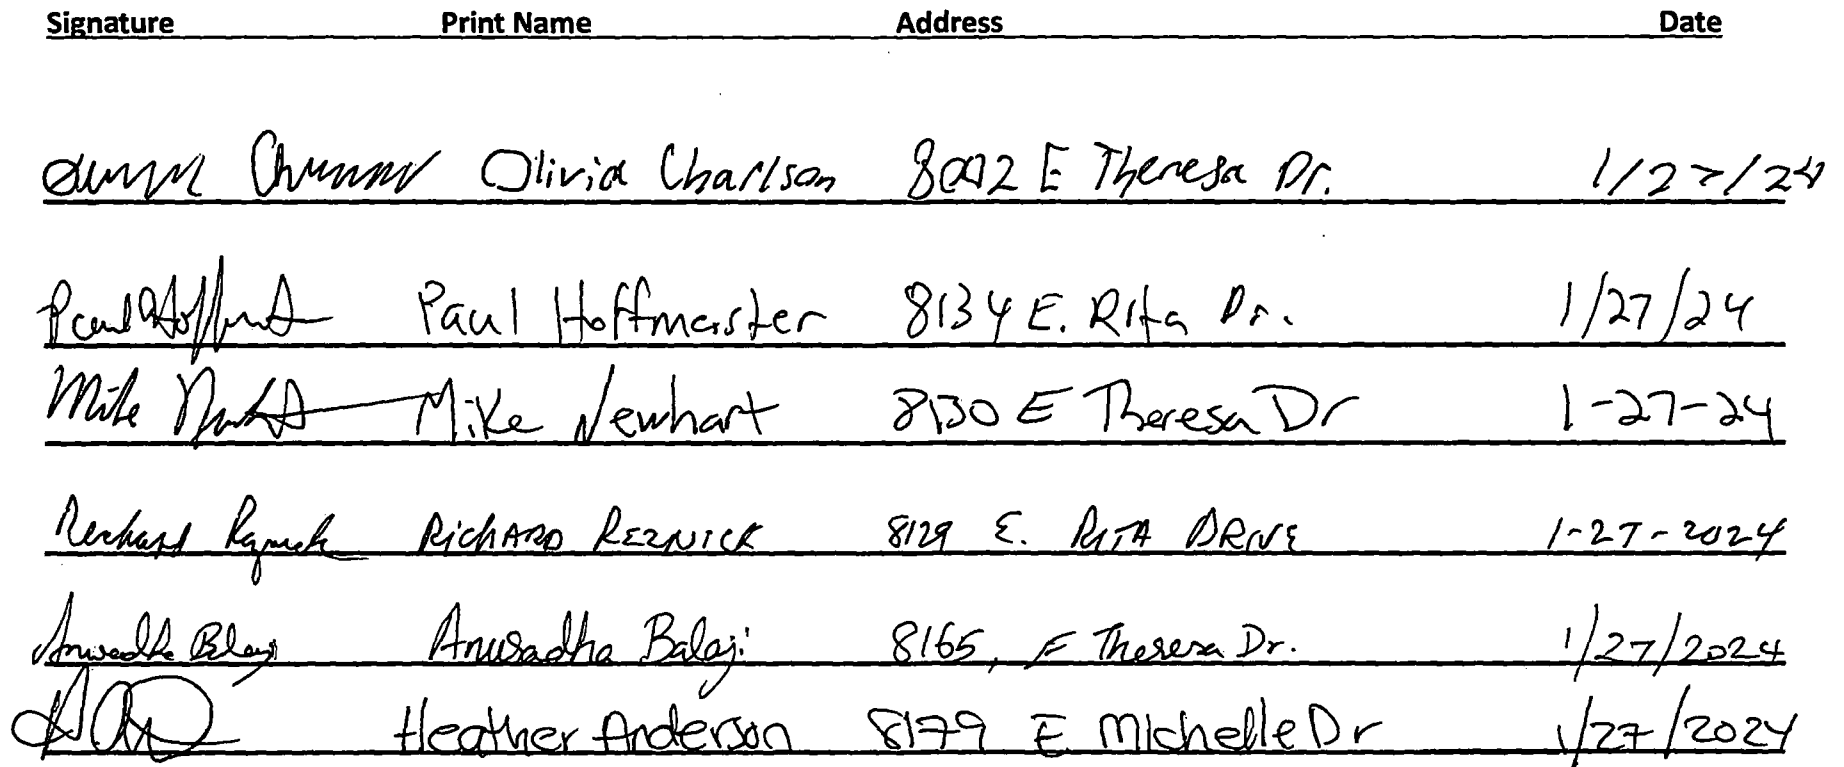 Signature Print Name Address Date
Olivia Charlson E Theresa Dr. 1/27/24
Paul Hoffmaster Paul Hoffmaster 8134 E. Rita Dr. 1/27/24
Mike Newhart Mike Newhart 8130 E Theresa Dr 1-27-24
Richard Reznick RICHARD REZNICK 8129 E. RITA DRIVE 1-27-2024
Anuradha Balaji Anuradha Balaji 8165, E Theresa Dr. 1/27/2024
Heather Anderson 8179 E Michelle Dr 1/27/2024